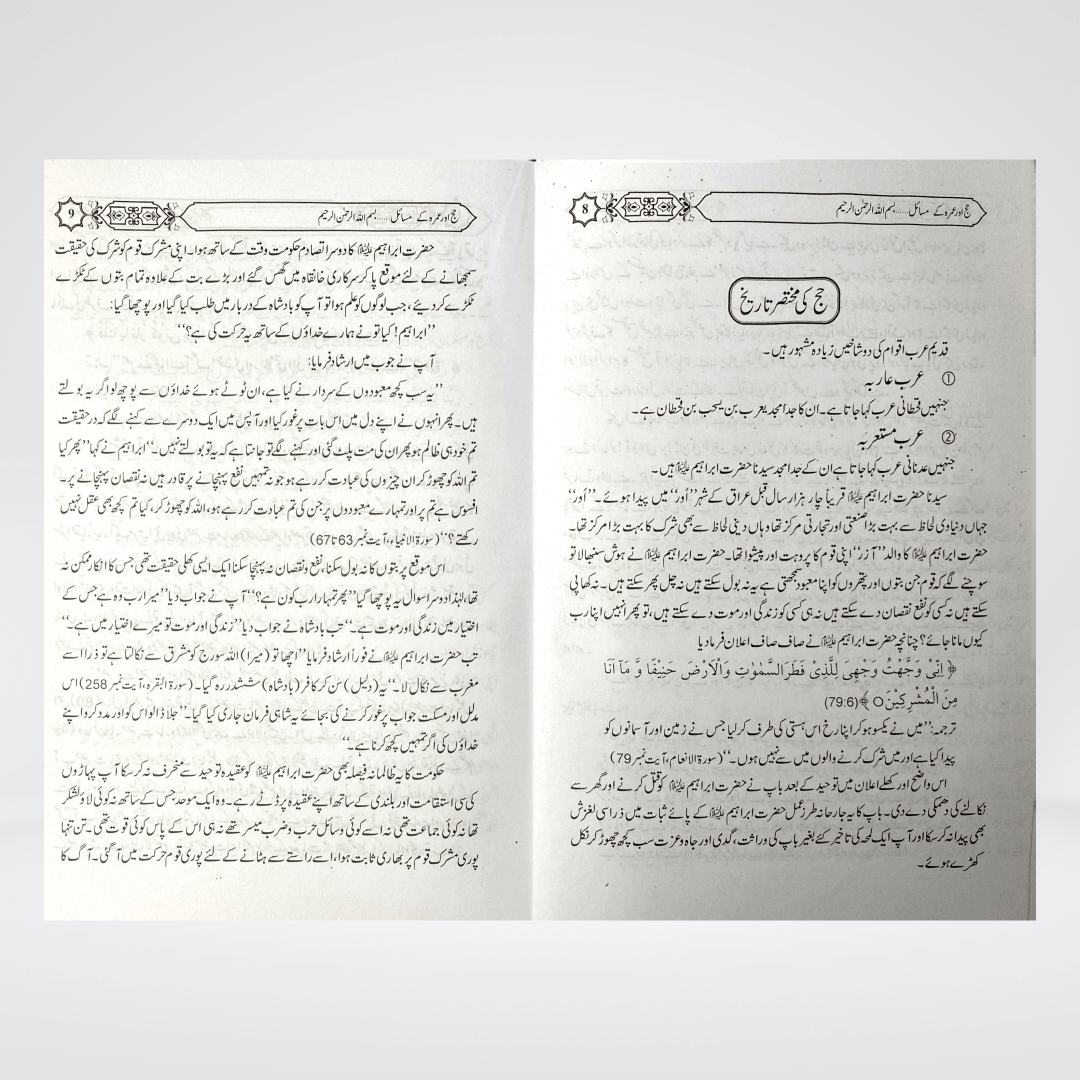 حج اور عمرہ کے مسائل......بسم اللہ الرحمٰن الرحیم
8
حج کی مختصر تاریخ
قدیم عرب اقوام کی دو شاخیں زیادہ مشہور ہیں۔
① عرب عاربہ
جنہیں قحطانی عرب کہا جاتا ہے۔ ان کا جدامجد یعرب بن یشجب بن قحطان ہے۔
② عرب مستعربہ
جنہیں عدنانی عرب کہا جاتا ہے ان کے جد امجد سیدنا حضرت ابراہیم علیہ السلام ہیں۔
سیدنا حضرت ابراہیم علیہ السلام قریباً چار ہزار سال قبل عراق کے شہر ’’اُور‘‘ میں پیدا ہوئے۔ ’’اُور‘‘
جہاں دنیاوی لحاظ سے بہت بڑا صنعتی اور تجارتی مرکز تھا وہاں دینی لحاظ سے بھی شرک کا بہت بڑا مرکز تھا۔
حضرت ابراہیم علیہ السلام کا والد ’’آزر‘‘ اپنی قوم کا پروہت اور پیشوا تھا۔ حضرت ابراہیم علیہ السلام نے ہوش سنبھالا تو
سوچنے لگے کہ قوم جن بتوں اور پتھروں کو اپنا معبود سمجھتی ہے یہ نہ بول سکتے ہیں نہ چل پھر سکتے ہیں۔ نہ کھا پی
سکتے ہیں نہ کسی کو نفع نقصان دے سکتے ہیں نہ ہی کسی کو زندگی اور موت دے سکتے ہیں، تو پھر انہیں اپنا رب
کیوں مانا جائے؟ چنانچہ حضرت ابراہیم علیہ السلام نے صاف صاف اعلان فرما دیا
﴿ اِنِّیْ وَجَّهْتُ وَجْهِیَ لِلَّذِیْ فَطَرَ السَّمٰوٰتِ وَالْاَرْضَ حَنِیْفًا وَّ مَآ اَنَا
مِنَ الْمُشْرِکِیْنَ○ ﴾ (79:6)
ترجمہ: ’’میں نے یکسو ہو کر اپنا رخ اس ہستی کی طرف کر لیا جس نے زمین اور آسمانوں کو
پیدا کیا ہے اور میں شرک کرنے والوں میں سے نہیں ہوں۔‘‘ (سورۃ الانعام، آیت نمبر 79)
اس واضح اور کھلے اعلان میں توحید کے بعد باپ نے حضرت ابراہیم علیہ السلام کو قتل کرنے اور گھر سے
نکالنے کی دھمکی دے دی۔ باپ کا یہ جارحانہ طرز عمل حضرت ابراہیم علیہ السلام کے پائے ثبات میں ذرا سی لغزش
بھی پیدا نہ کر سکا اور آپ ایک لمحہ کی تاخیر کئے بغیر باپ کی وراثت، گدی اور جاہ و عزت سب کچھ چھوڑ کر نکل
کھڑے ہوئے۔
حج اور عمرہ کے مسائل......بسم اللہ الرحمٰن الرحیم
9
حضرت ابراہیم علیہ السلام کا دوسرا تصادم حکومت وقت کے ساتھ ہوا۔ اپنی مشرک قوم کو شرک کی حقیقت
سمجھانے کے لئے موقع پا کر سرکاری خانقاہ میں گھس گئے اور بڑے بت کے علاوہ تمام بتوں کے ٹکڑے
ٹکڑے کر دیئے، جب لوگوں کو علم ہوا تو آپ کو بادشاہ کے دربار میں طلب کیا گیا اور پوچھا گیا:
’’ابراہیم! کیا تو نے ہمارے خداؤں کے ساتھ یہ حرکت کی ہے؟‘‘
آپ نے جواب میں ارشاد فرمایا:
’’یہ سب کچھ معبودوں کے سردار نے کیا ہے، ان ٹوٹے ہوئے خداؤں سے پوچھ لو اگر یہ بولتے
ہیں۔ پھر انہوں نے اپنے دل میں اس بات پر غور کیا اور آپس میں ایک دوسرے سے کہنے لگے کہ در حقیقت
تم خود ہی ظالم ہو پھر ان کی مت پلٹ گئی اور کہنے لگے تو جانتا ہے کہ یہ تو بولتے نہیں۔‘‘ ابراہیم نے کہا ’’پھر کیا
تم اللہ کو چھوڑ کر ان چیزوں کی عبادت کر رہے ہو جو نہ تمہیں نفع پہنچانے پر قادر ہیں نہ نقصان پہنچانے پر۔
افسوس ہے تم پر اور تمہارے معبودوں پر جن کی تم عبادت کر رہے ہو، اللہ کو چھوڑ کر، کیا تم کچھ بھی عقل نہیں
رکھتے؟‘‘ (سورۃ الانبیاء، آیت نمبر 63 تا 67)
اس موقع پر بتوں کا نہ بول سکنا، نفع و نقصان نہ پہنچا سکنا ایک ایسی کھلی حقیقت تھی جس کا انکار ممکن نہ
تھا، لہٰذا دوسرا سوال یہ پوچھا گیا ’’پھر تمہارا رب کون ہے؟‘‘ آپ نے جواب دیا ’’میرا رب وہ ہے جس کے
اختیار میں زندگی اور موت ہے۔‘‘ تب بادشاہ نے جواب دیا ’’زندگی اور موت تو میرے اختیار میں ہے۔‘‘
تب حضرت ابراہیم علیہ السلام نے فوراً ارشاد فرمایا ’’اچھا تو (میرا) اللہ سورج کو مشرق سے نکالتا ہے تو ذرا اسے
مغرب سے نکال لا۔‘‘ یہ (دلیل) سن کر کافر (بادشاہ) ششدر رہ گیا۔ (سورۃ البقرہ، آیت نمبر 258) اس
مدلل اور مسکت جواب پر غور کرنے کی بجائے یہ شاہی فرمان جاری کیا گیا۔ ’’جلا ڈالو اس کو اور مدد کرو اپنے
خداؤں کی اگر تمہیں کچھ کرنا ہے۔‘‘
حکومت کا یہ ظالمانہ فیصلہ بھی حضرت ابراہیم علیہ السلام کو عقیدہ توحید سے منحرف نہ کر سکا آپ پہاڑوں
کی سی استقامت اور بلندی کے ساتھ اپنے عقیدہ پر ڈٹے رہے۔ وہ ایک موحد جس کے ساتھ نہ کوئی لاؤ لشکر
تھا نہ کوئی جماعت تھی نہ اسے کوئی وسائل حرب و ضرب میسر تھے نہ ہی اس کے پاس کوئی قوت تھی۔ تن تنہا
پوری مشرک قوم پر بھاری ثابت ہوا، اسے راستے سے ہٹانے کے لئے پوری قوم حرکت میں آ گئی۔ آگ کا